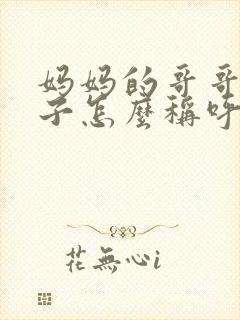 妈妈的哥哥
子怎麼稱呼
花無心i